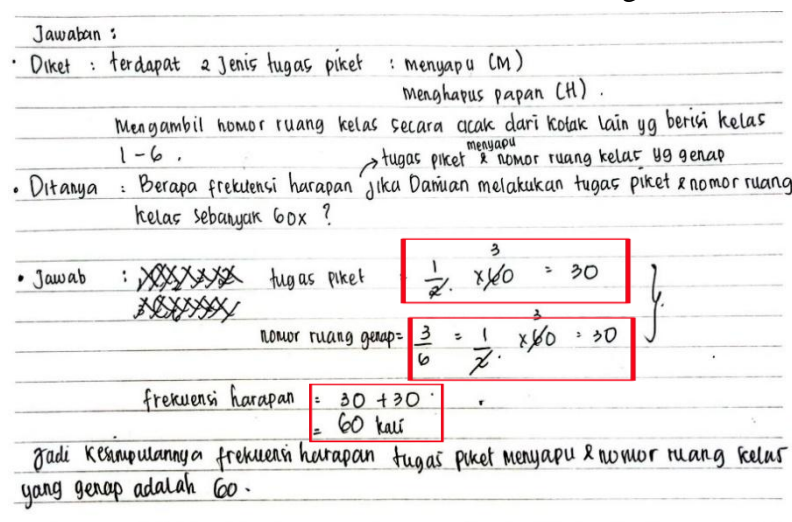 Jawaban :
• Diket : terdapat 2 Jenis tugas piket : menyapu (M)
Menghapus papan (H) .
Mengambil nomor ruang kelas secara acak dari kotak lain yg berisi kelas
1 - 6 .
→ tugas piket menyapu & nomor ruang kelas yg genap
• Ditanya : Berapa frekuensi harapan jika Damian melakukan tugas piket & nomor ruang
kelas sebanyak 60x ?
• Jawab : tugas piket = 1/2 . x 60 3 = 30
nomor ruang genap = 3/6 = 1/2 . x 60 3 = 30
frekuensi harapan = 30 + 30
= 60 kali
Jadi kesimpulannya frekuensi harapan tugas piket menyapu & nomor ruang kelas
yang genap adalah 60.